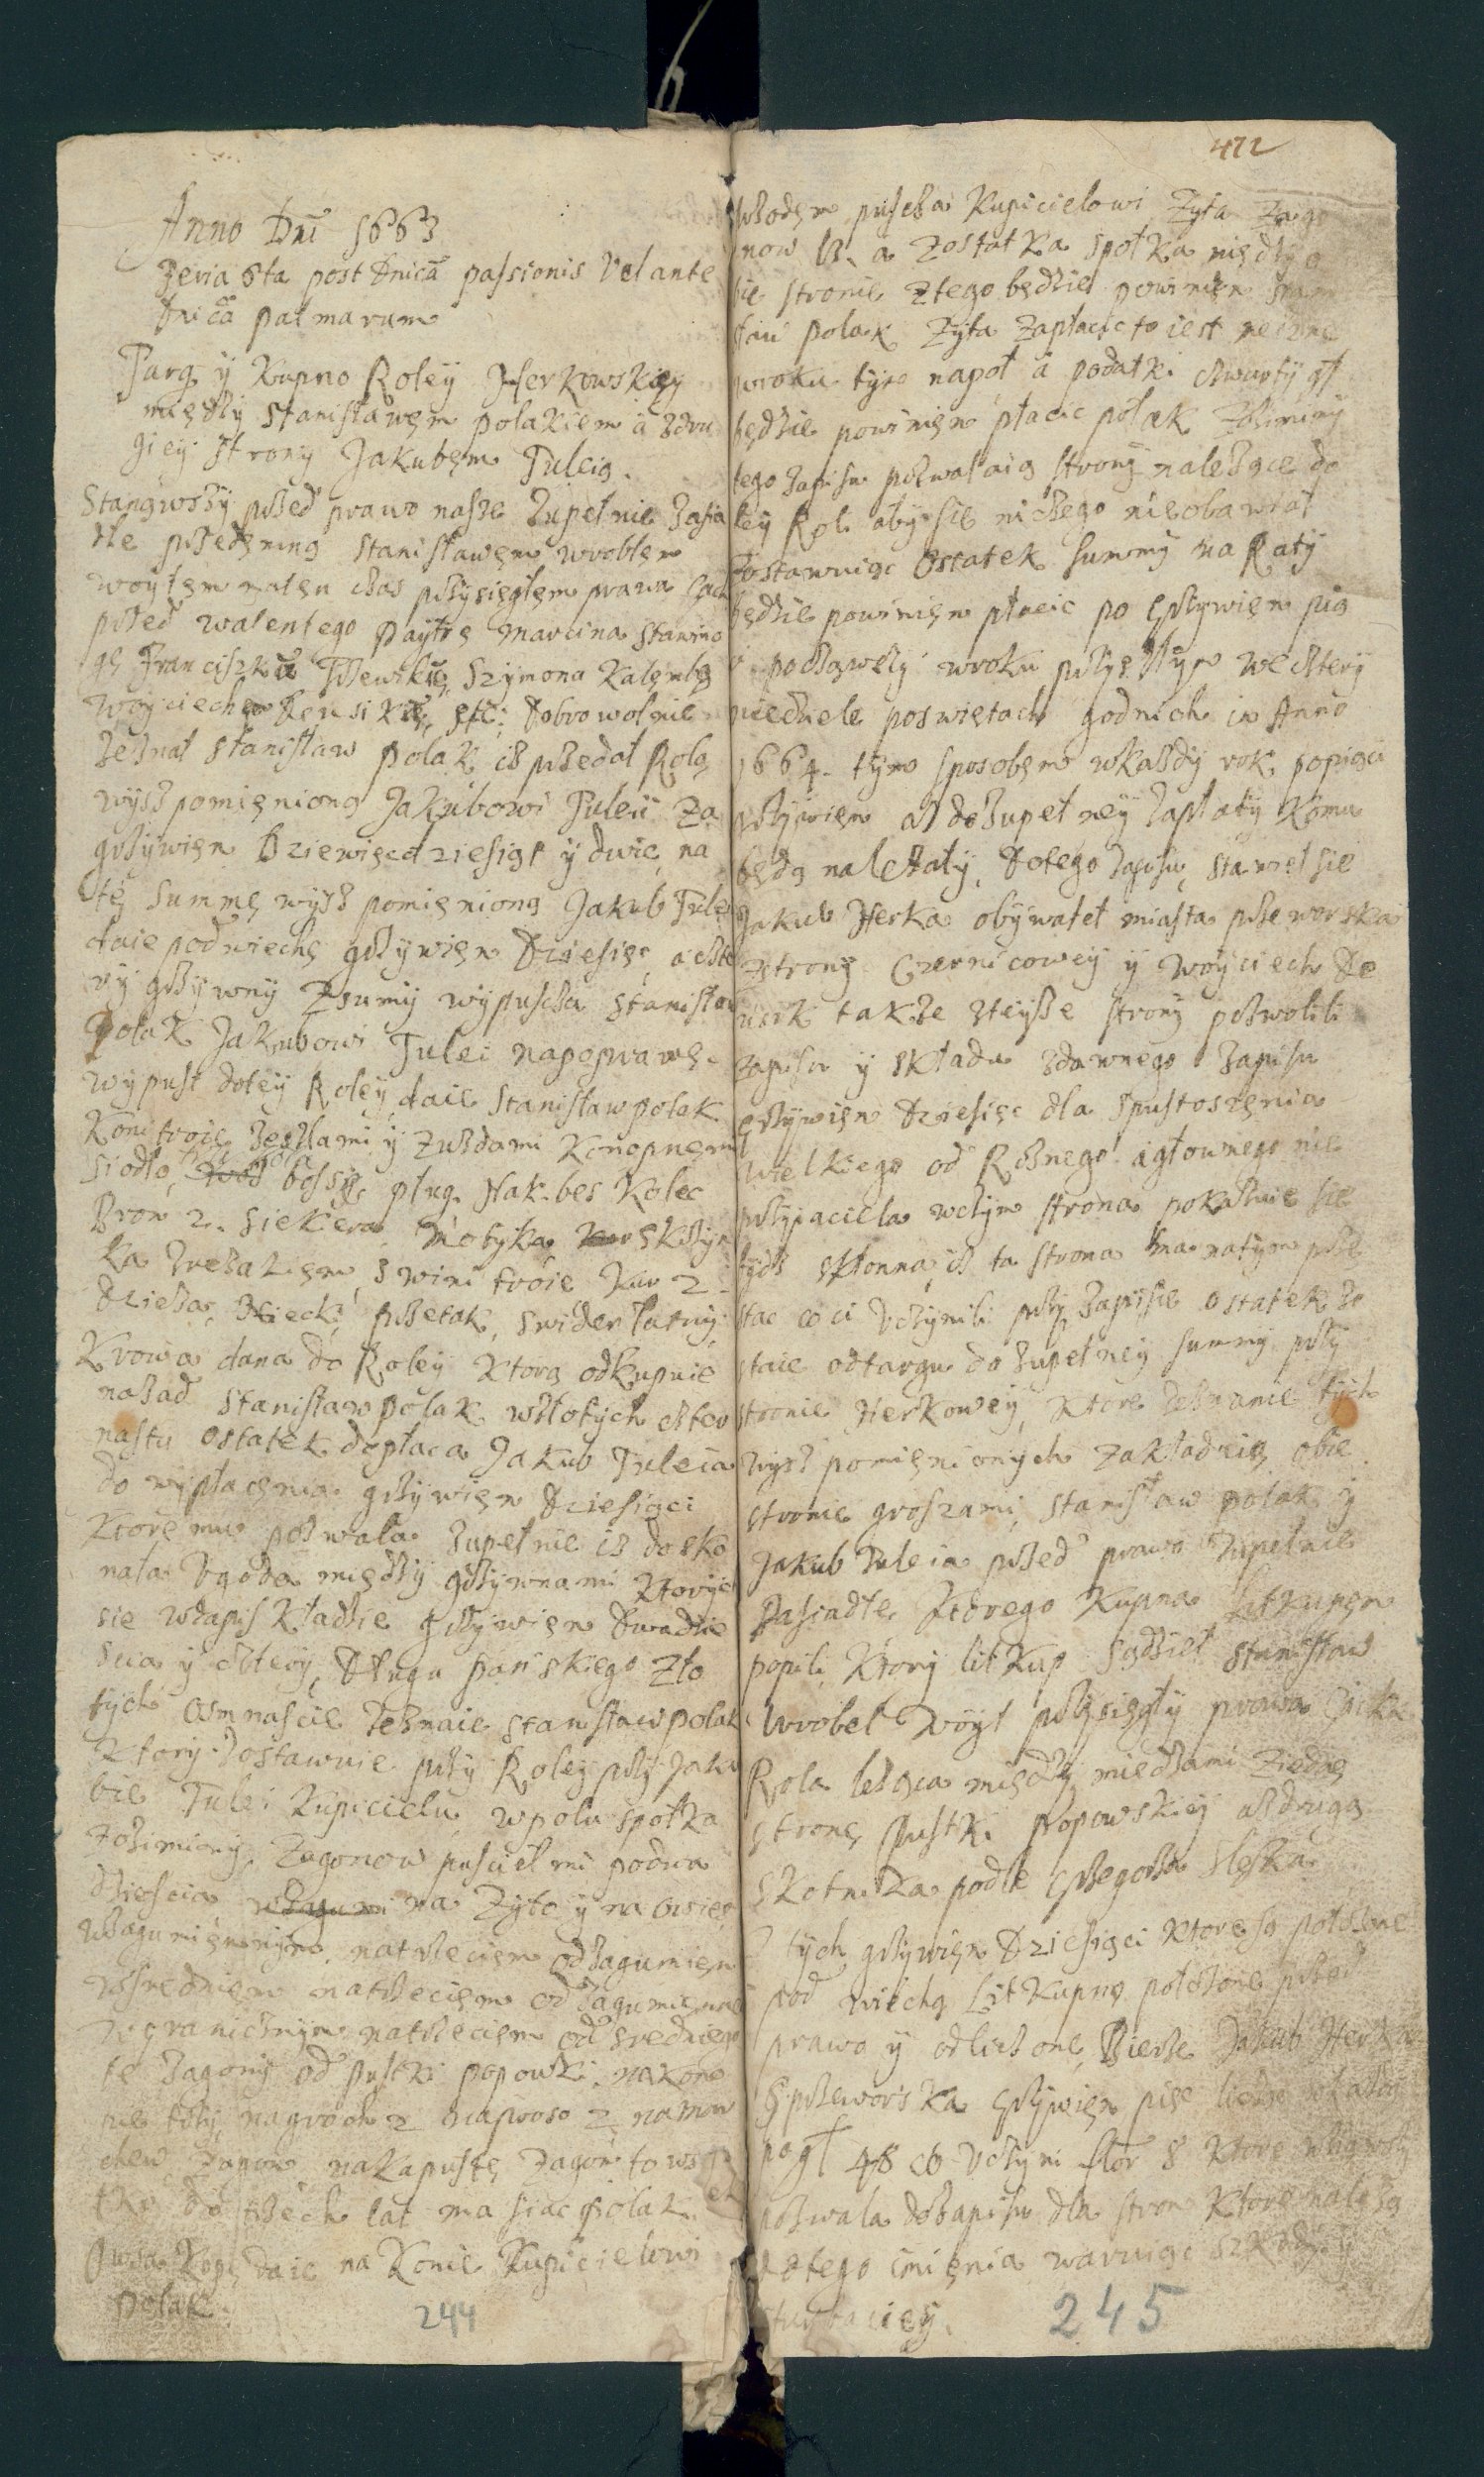 Anno Dni 1663
Feria 6ta post Dnicā passionis Vel ante
Dnicā palmarum
Targ y Kupno Roley Herkowskiey
między Stanisławem polakiem a zdru
giey strony Jakubem Tuleią.
Stanąwszy przed prawo nasze zupełnie zasia
dłe przedemną Stanisławem wroblem
woytem na ten czas przysięgłem prawa
przed walentego Paytrę Marcina Stawno
gę Franciszka Szymona Kalembę
woyciecha etc: Dobrowolnie
zeznał Stanisław Polak iż przedał Rolą
wyszpomięnioną Jakubowi Tuleii Za
grzywien Dziewięcdziesiąt y dwie, na
tę Summę wysz pomięnioną Jakub Tule
daie pod wiechę grzywien Dziesięc, a czte
ry grzywny Zsumy wypuscza Stanisław
Polak Jakubowi Tulei na poprawę.
wypust do tey Roley daie Stanisław polak
Koni troie zeszlami y zuzdami Konopnemi
siodło, bossy, pług. Hak. bes Kolec
Bron 2. Siekiera, Motyka, skrzyn
ka zrezakiem, Swini troie Kur 2
Dzieża, Niecki, przetak, Swider łatny
Krowa dana do Roley Ktorą odkupuie
nazad Stanisław polak wzłotych czter
nastu Ostatek dopłaca Jakub Tuleia
do wypłacenia grzywien Dziesiąci
Ktoremu pozwala zupełnie iż dosko
nała Ugoda między grzywnami Ktorych
sie wzapis Kładzie grzywien Dwadzie
scia y cztery, Długu Pańskiego Zło
tych Osmnascie zeznaie Stanisław polak
Ktory zostawuie przy Roley przy Jaku
bie Tulei Kupicielu wpolu społka
zozimiony, Zagonow puscieł mi podwa
dziescia na Zyto y na owies
wzagumiennym na trzeciem odzagumien
wsrednim na trzeciem od zagumienne
wgranicznym na trzeciem od sredniego
te zagony od pustki popowki, nakono
pie trzy, nagroch 2 naproso 2 na mar
chew zagon, nakapustę Zagon, to wszy
tko do trzech lat ma siac Polak
Owsa Kopę daie na Konie Kupicielowi
Polak.
244
422
puscza Kupicielowi Zyta Zago
now 13. a Zostatka społka między o
bie stronie Ztego będzie powinien
polak Zyta Zapłacic to iest
wroku tym napoł a podatki czwarty gł
będzie powinien płacic polak Zozimyny
tego zapisu pozwalaią strony należące do
tey Roli aby sie niczego nieobawiał
zostawuiąc Ostatek Summy na Raty
będzie powinien płacic po grzywien pią
poczawszy wroku przyszłym we cztery
niedziele poswiętach godnich in Anno
1664. tym sposobem wkazdy rok popiąci
grzywien aż dozupełney zapłaty Komu
będą należały, Do tego zapisu, stawieł sie
Jakub Herka obywateł miasta przeworska
Zstrony Czernicowey y woyciech
także zteyże strony pozwolili
zapisu y składu zdawnego zapisu
grzywien Dziesięc dla Spustoszenia
wielkiego od Roznego agłownego nie
przyiaciela wczym strona pokazuie sie
bydz skłonna, iż ta strona ma na tym prze
stac co ci Uczynili przy zapisie Ostatek zo
staie odtargu do zupełney summy przy
stronie Herkowey, Ktore zeznanie tych
wysz pomięnionych zakładaią obie
stronie groszami, Stanisław polak y
Jakub Tuleia przed prawo Zupełnie
zasiadłe, Ktorego Kupna Litkupem
popili Ktory litkup sądzieł Stanisław
Wrobel Woyt przysięgły prawa
Rola leząca między miedzami Ziedną
stronę Pustki Popowskiey azdrugą
Skotnika podle Grzegorza Sleska
Z tych grzywien Dziesiąci Ktore są położone
pod wiechą Litkupną położone przed
prawo y odliczone, Bierze Jakub Herka
Sprzeworska grzywien pięc licząc wkazdą
po gł 48 co Uczyni flor 8 Ktore wziąwszy
pozwala dozapisu dla stron Ktore należą
do tego imienia waruiąc
245